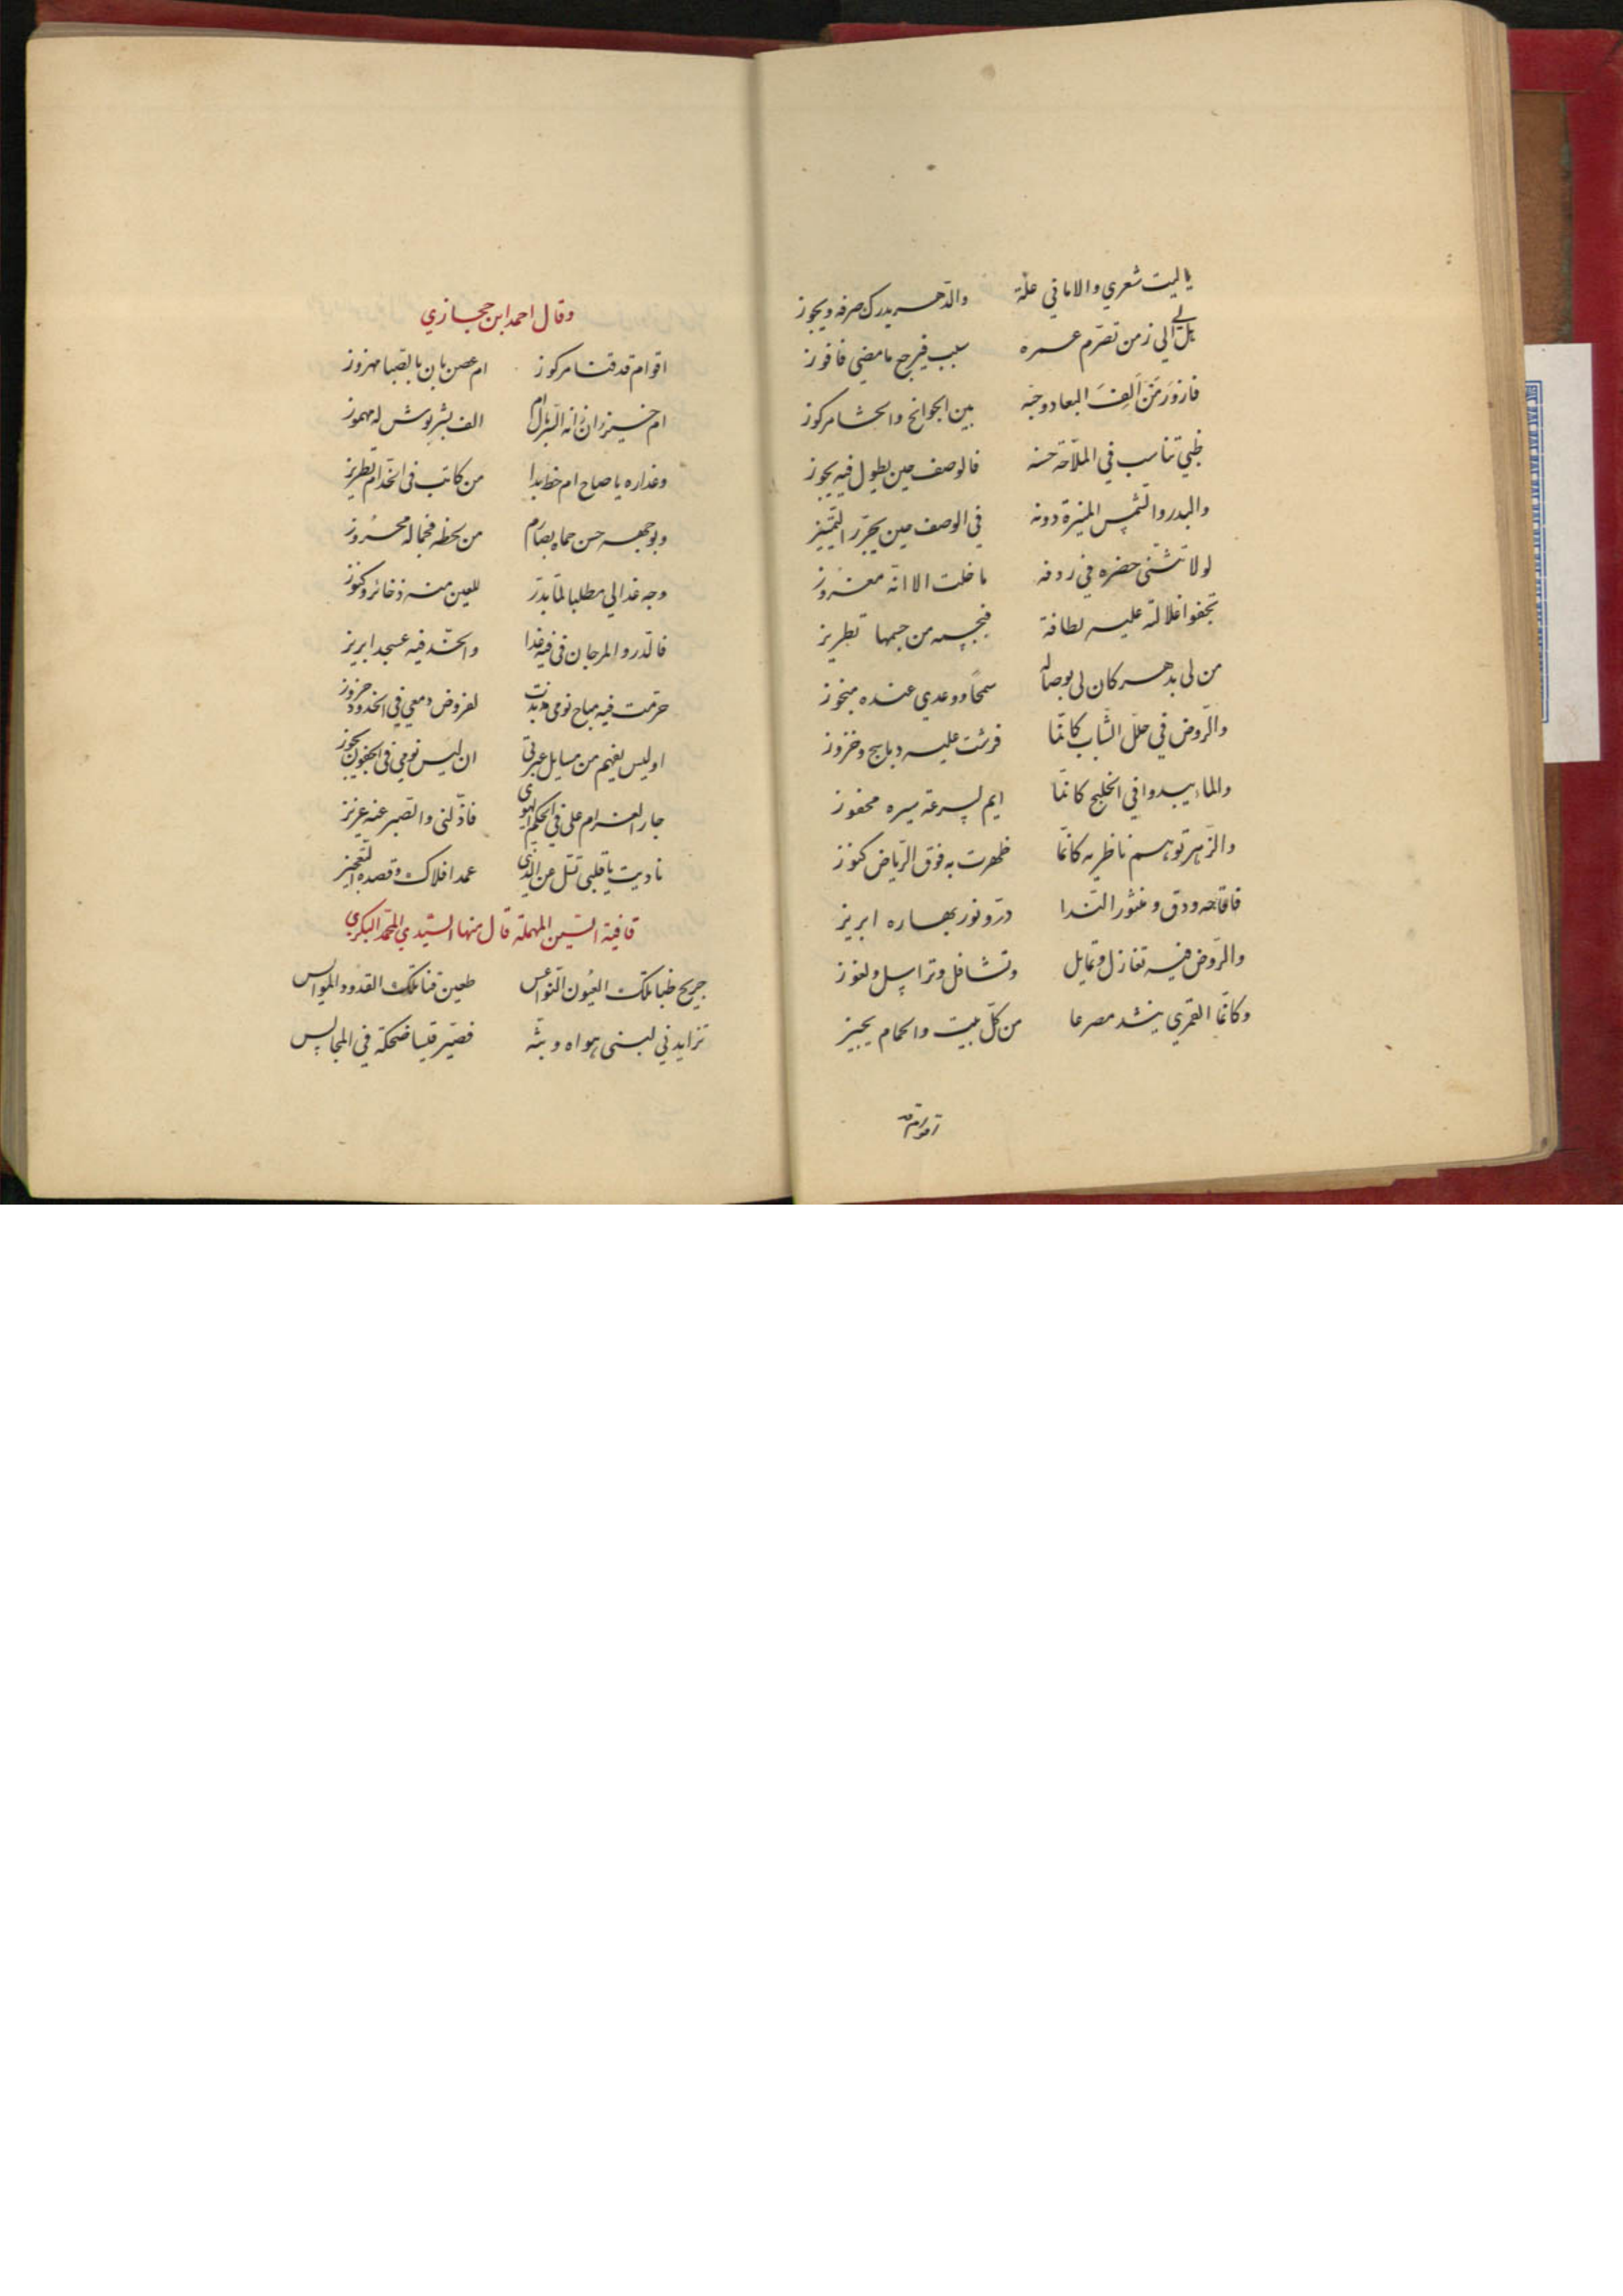 ياليت شعري والاماني علة والدهر يدرك صرفه ويجوز
بل لي الي زمن تصرم عسره سبب فيرجع مامضي فافوز
فازور من الف البعاد وجبه بين الجوانح والحشا مركوز
ظبي تناسب في الملاحة حسنه فالوصف حين يطول فيه يجوز
والبدر والشمس المنيرة دونه في الوصف حين يحرر التمييز
لولا تثني خضره في ردفه ماخلت الا انه مغروز
تجفوا غلالته عليه لطافة فبجسمه من جسمها تطريز
من لي بدهر كان لي بوصاله سمحا ووعدي عنده منجوز
والروض في حلل الشباب كانما فرشت عليه دبابيج وخزوز
والماء يبدوا في الخليج كانما ايم لسرعة سيره محفوز
والزهر توهم ناظريه كانما ظهرت به فوق الرياض كنوز
فاقاحه ودق ومنثور الندا در ونور بهاره ابريز
والروض فيه تغازل وتمايل وتشاغل وتراسل ولغوز
وكانما القمري ينشد مصرعا من كل بيت والحمام يجيز
اقوام قد
وقال احمد ابن حجازي
اقوام قد قنا مركوز ام غصن بان بالصبا مهزوز
ام خيزران زانه البزل ام الف بشربوش له مهموز
وعذاره ياصاح ام خط بدا من كاتب في الخد ام تطريز
وبوجهه حسن حماه بصارم من لحظه فجماله محروز
وجه غدا لي مطلبا لما بدر للعين منه ذخائر وكنوز
فالدر والمرجان في فيه غدا والخد فيه عسجد ابريز
حرمت فيه مباح نومي لفروض دمعي في الخدود حزوز
اوليس يفهم من مسايل عبرتي ان ليس نومي في الجفون يجوز
جار الغرام علي في الحكم الهوي فاذلني والصبر عنه عزيز
ناديت ياقلبي تسل عن الذي عمدا فلاك وقصده التعجيز
قافية السين المهملة قال منها السيدي المحمد البكري
جريح ظبا تلك العيون النواعس طعين قنا تلك القدود المواس
تزايد ني لبني هواه وبثه فصير قيسا ضحكة في المجالس